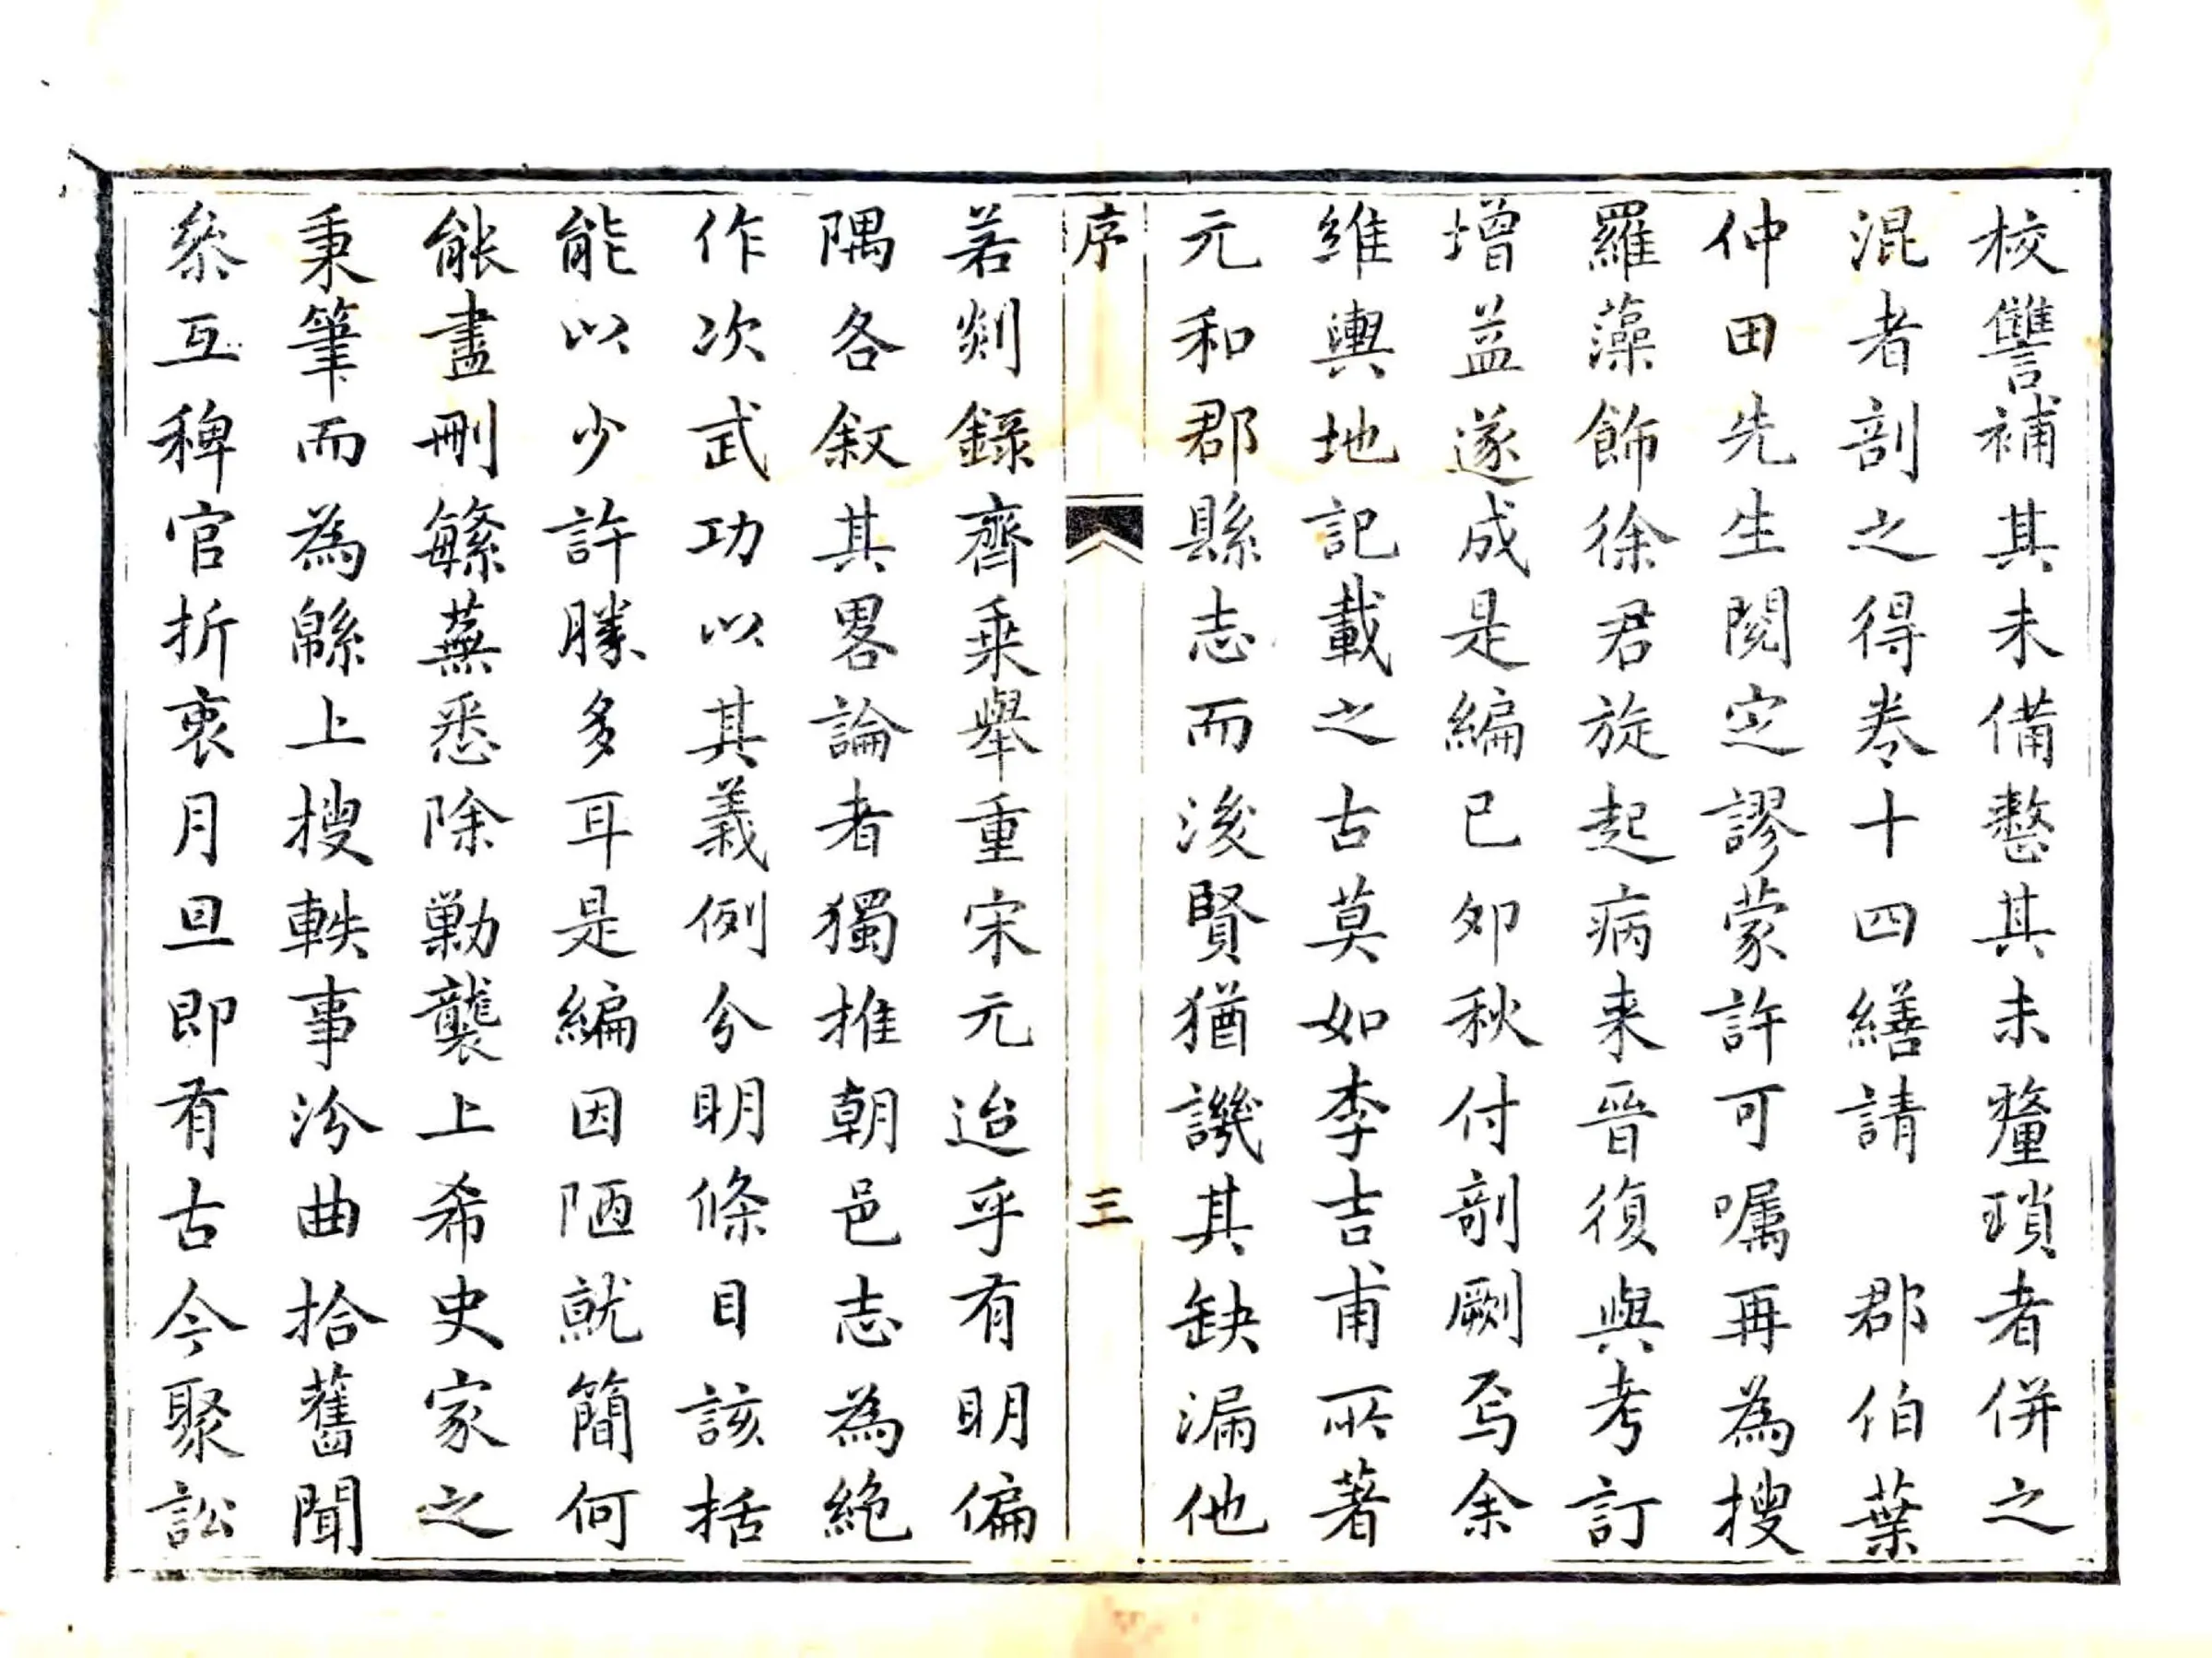 校讐補其未備整其未釐瑣者併之
混者剖之得卷十四繕請　郡伯葉
仲田先生閱定謬蒙許可囑再為搜
羅藻飾徐君旋起病来晉復與考訂
增益遂成是編已卯秋付剞劂焉余
維輿地記載之古莫如李吉甫所著
元和郡縣志而後賢猶譏其缺漏他
序
三
若剡錄齊乘舉重宋元迨乎有明偏
隅各叙其畧論者獨推朝邑志為絶
作次武功以其義例分明條目該括
能以少許勝多耳是編因陋就簡何
能盡刪繁蕪悉除勦襲上希史家之
秉筆而為緜上搜軼事汾曲拾舊聞
叅互稗官折衷月旦即有古今聚訟